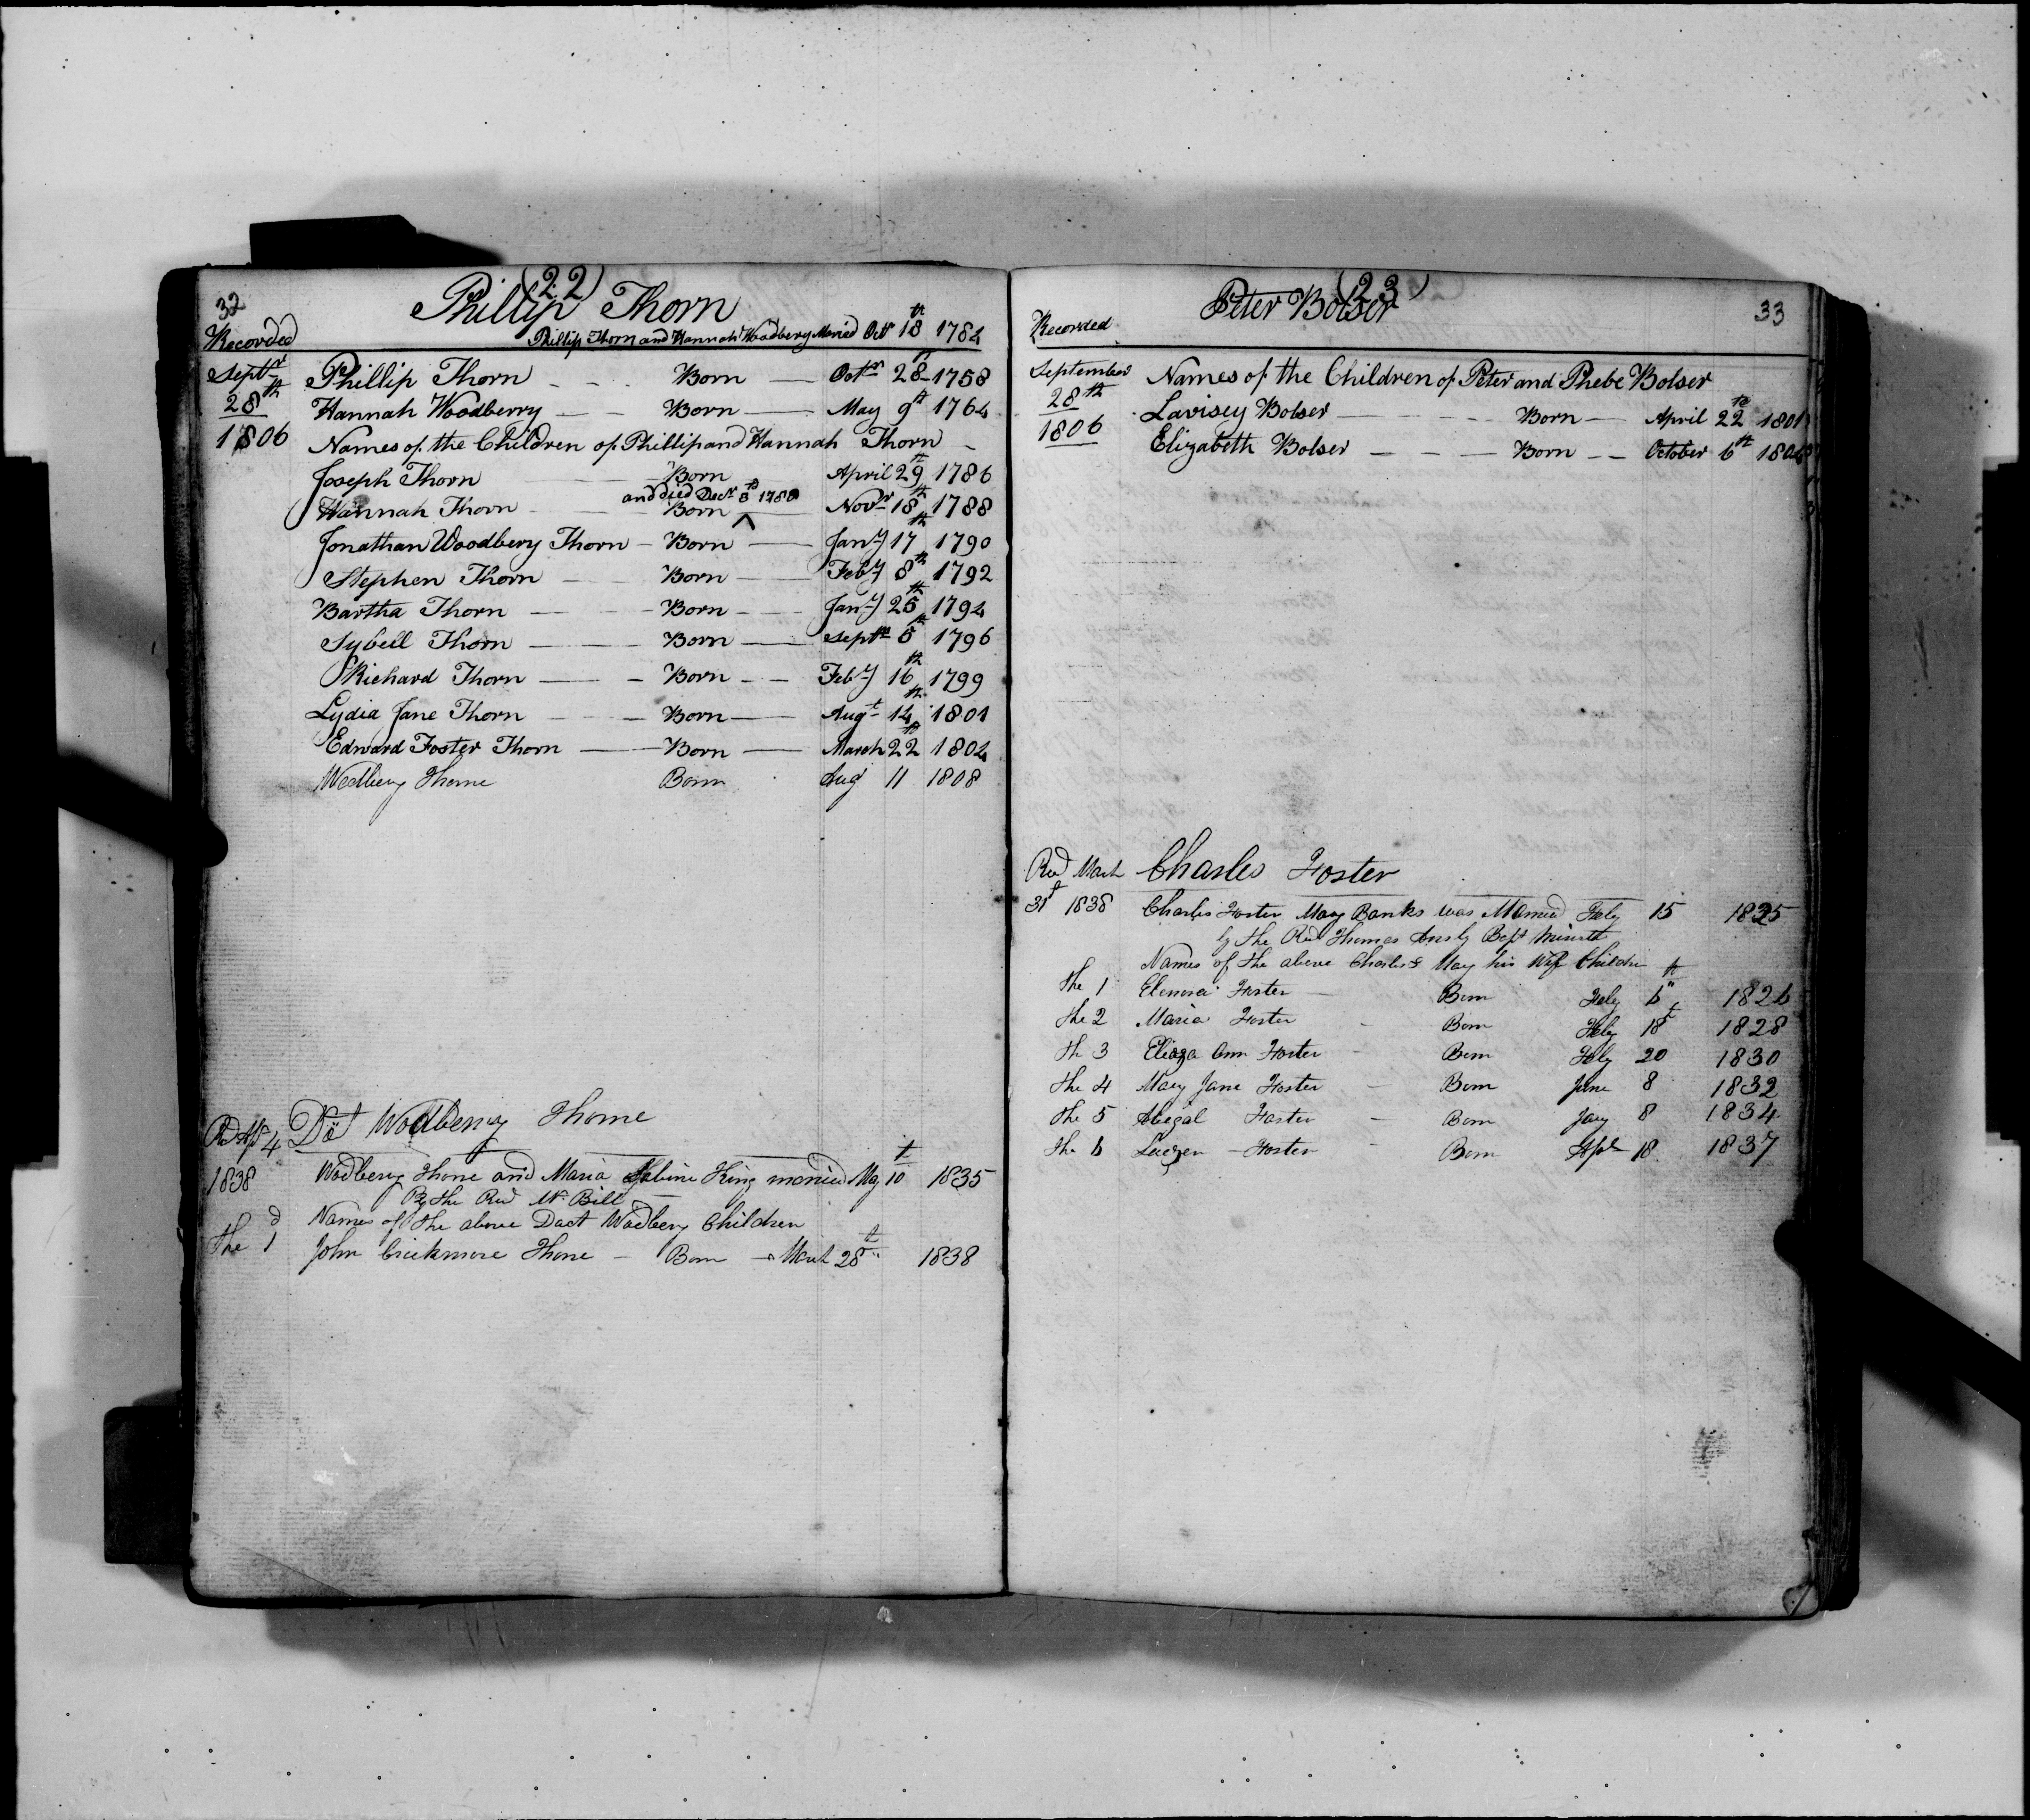 32
(22)
Phillip Thorn
Recorded
Phillip Thorn and Hannah Woodbery Maried Octr 18th 1784
Septr 28th 1806
Phillip Thorn - - - Born — Octr 28th 1758
Hannah Woodberry — — Born — May 9th 1764
Names of the Children of Phillip and Hannah Thorn -
Joseph Thorn — Born April 29th 1786
and died Decr 5th 1788
Hannah Thorn - Born ^ — Novr 18th 1788
Jonathan Woodbery Thorn - Born — Jany 17th 1790
Stephen Thorn — - Born — Feby 8th 1792
Bartha Thorn — - Born — Jany 25th 1794
Sybell Thorn — — Born — Septr 5th 1796
Richard Thorn — - Born - - Feby 16th 1799
Lydia Jane Thorn — - Born — Augt 14th 1801
Edward Foster Thorn — Born — March 22th 1804
Wodbery Thorne Born Aug 11 1808
Rd Apl 4 1838
Wodbery Thorne
Wodbery Thorne and Maria Sabine King maried May 10t 1835
By the Red Mr Bill
Names of the above Doct Wodbery Children
The 1d John Crickmore Thorne - Born - March 28th 1838
33
(23)
Peter Bolser
Recorded
September 28th 1806
Names of the Children of Peter and Phebe Bolser
Lavisey Bolser — - - - Born — April 22th 1801
Elizabeth Bolser — - — Born - - October 6th 1804
Red March 31t 1838
Charles Foster
Charles Foster Mary Banks was Maried Feby 15 1825
by the Red Thomas Ansly Bapt Minist
Names of the above Charles & Mary his Wife Childrn
The 1 Elenora Foster — Born Feby 6th 1826
The 2 Maria Foster - Born Feby 18t 1828
Th 3 Eliza Ann Foster - Born Feby 20 1830
The 4 Mary Jane Foster - Born June 8 1832
The 5 Abegal Foster - Born Jany 8 1834
The 6 Foster - Born Apl 18 1837